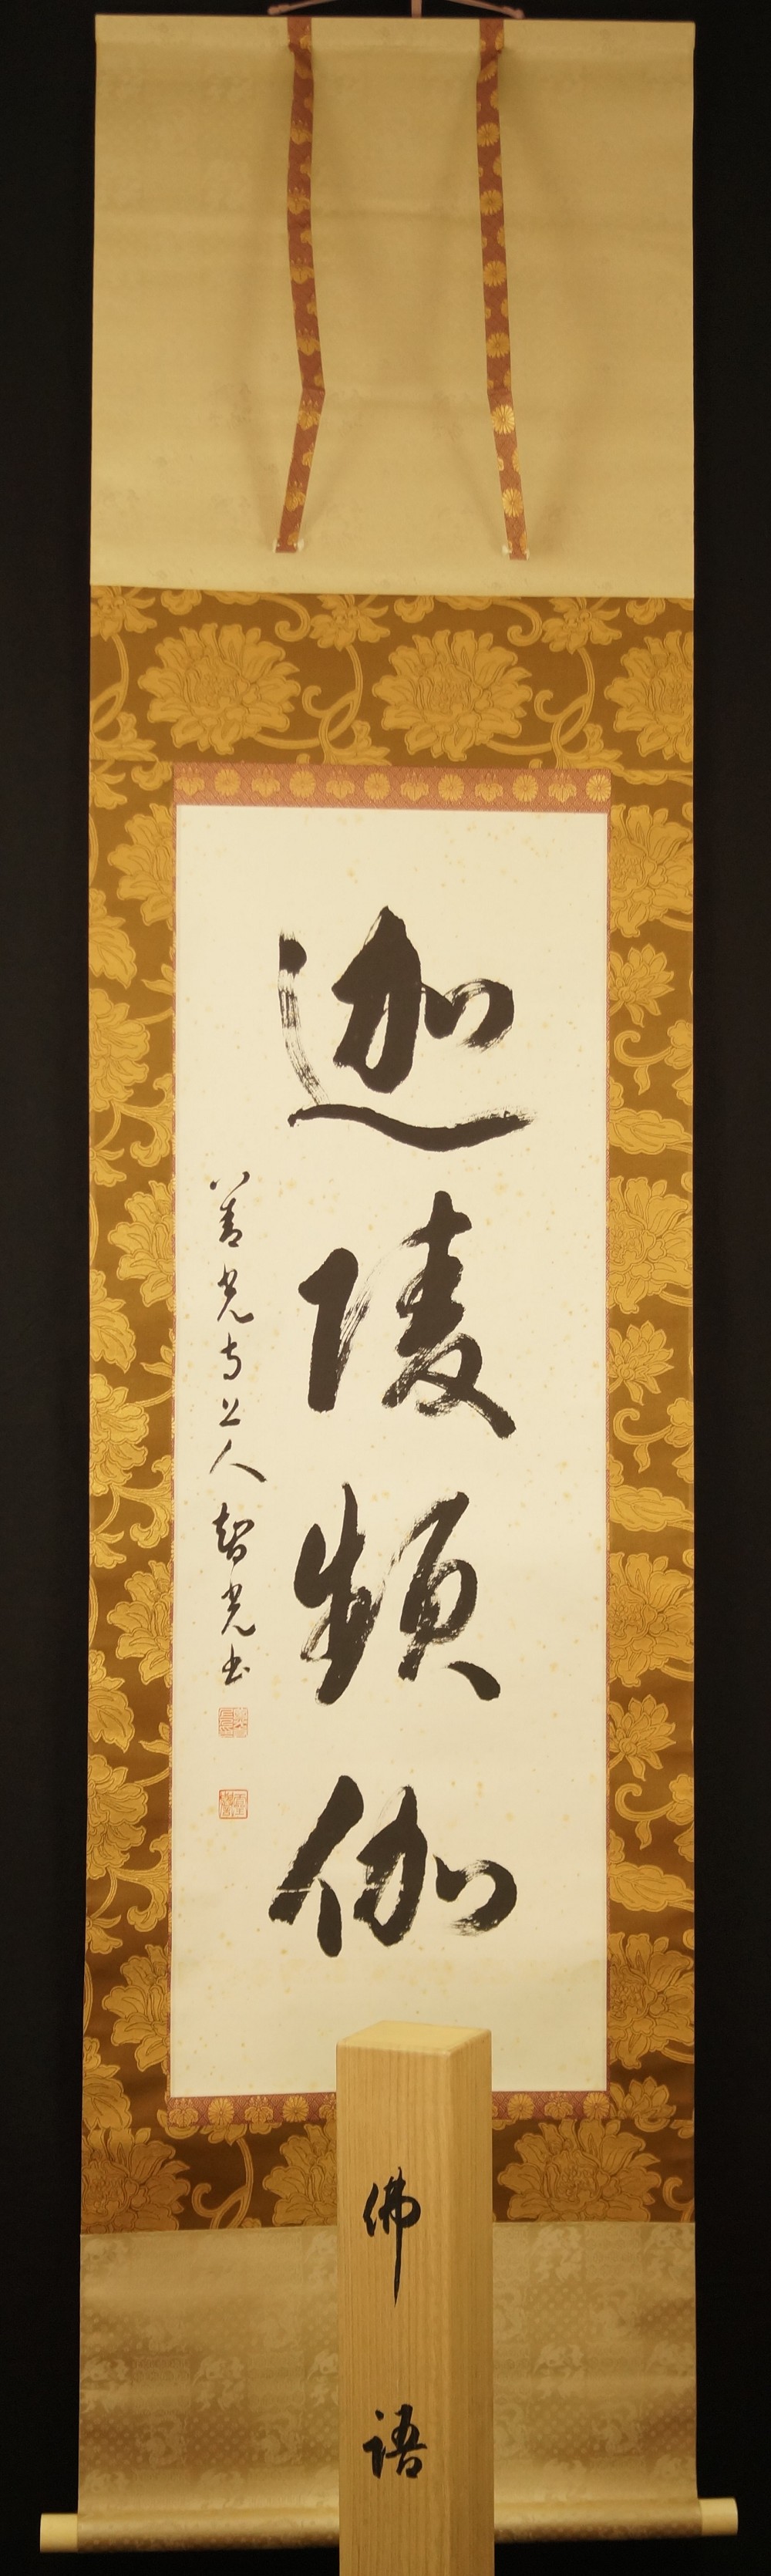 迦陵頻伽
善光寺上人 智光書
佛語